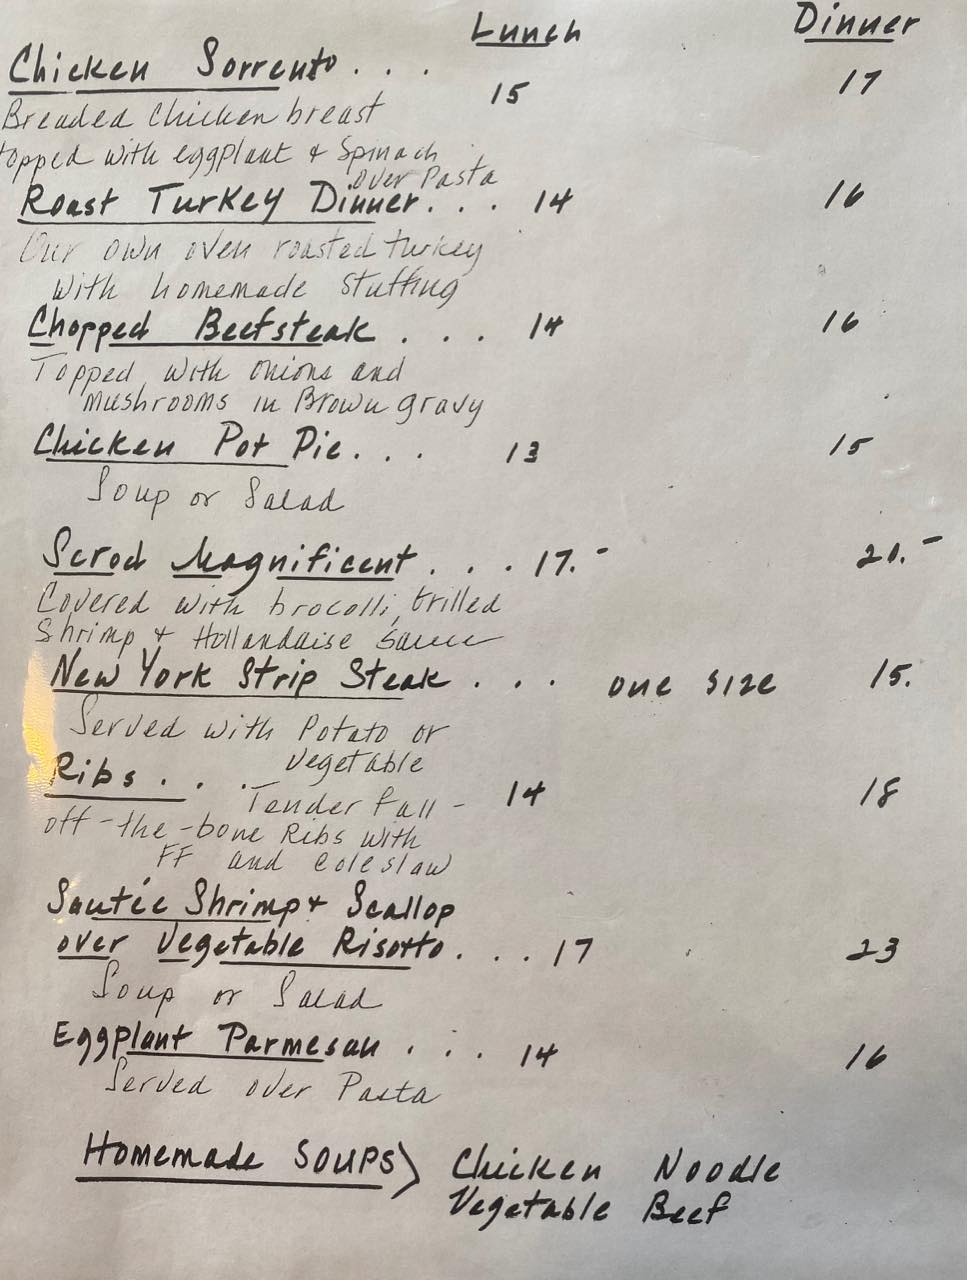 Lunch Dinner
Chicken Sorrento . . . . 15 17
Breaded Chicken breast
topped with eggplant & Spinach
over Pasta
Roast Turkey Dinner. . . 14 16
Our own oven roasted turkey
with homemade stuffing
Chopped Beefsteak . . . 14 16
Topped with onions and
mushrooms in Brown gravy
Chicken Pot Pie. . . 13 15
Soup or Salad
Scrod Magnificent . . . 17.- 20.-
Covered with brocolli, Grilled
Shrimp & Hollandaise Sauce
New York Strip Steak . . . one size 15.
Served with Potato or
Vegetable
Ribs . . . 14 18
Tender fall-
off-the-bone Ribs with
FF and coleslaw
Sautée Shrimp & Scallop
over Vegetable Risotto. . . . 17 23
Soup or Salad
Eggplant Parmesan . . . 14 16
Served over Pasta
Homemade SOUPS> Chicken Noodle
Vegetable Beef